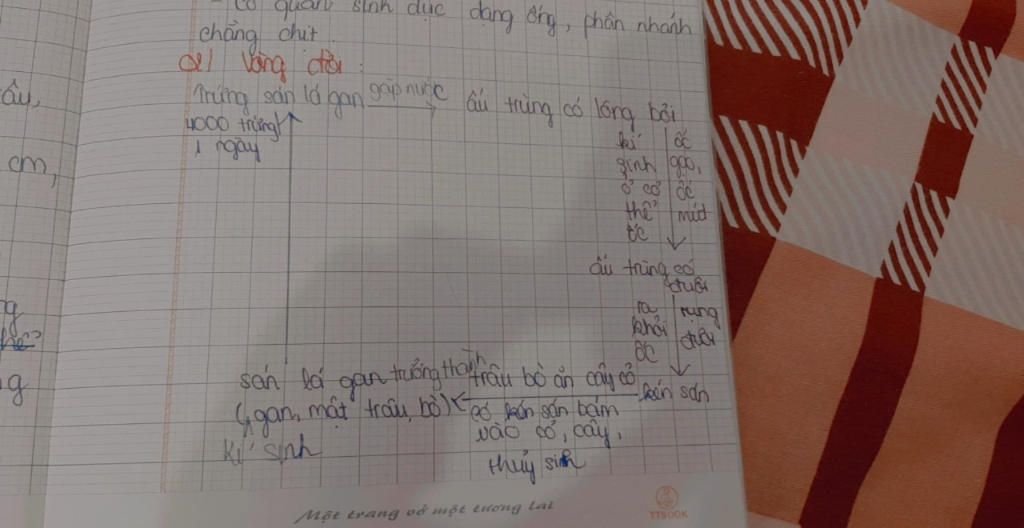 - Cơ quan sinh dục dạng ống, phân nhánh
chằng chịt
d/ Vòng đời:
Trứng sán lá gan gặp nước ấu trùng có lông bơi
4000 trứng/
1 ngày
kí
sinh
ở cơ
thể
ốc
ốc
gạo,
ốc
mút
ấu trùng có
đuôi
ra
khỏi
ốc
rụng
đuôi
kén sán
trâu bò ăn cây cỏ
có kén sán bám
vào cỏ, cây,
thuỷ sinh
sán lá gan trưởng thành
(gan, mật trâu, bò)
kí sinh
âu,
cm,
g
g
Một trang vở một tương lai
TTBOOK